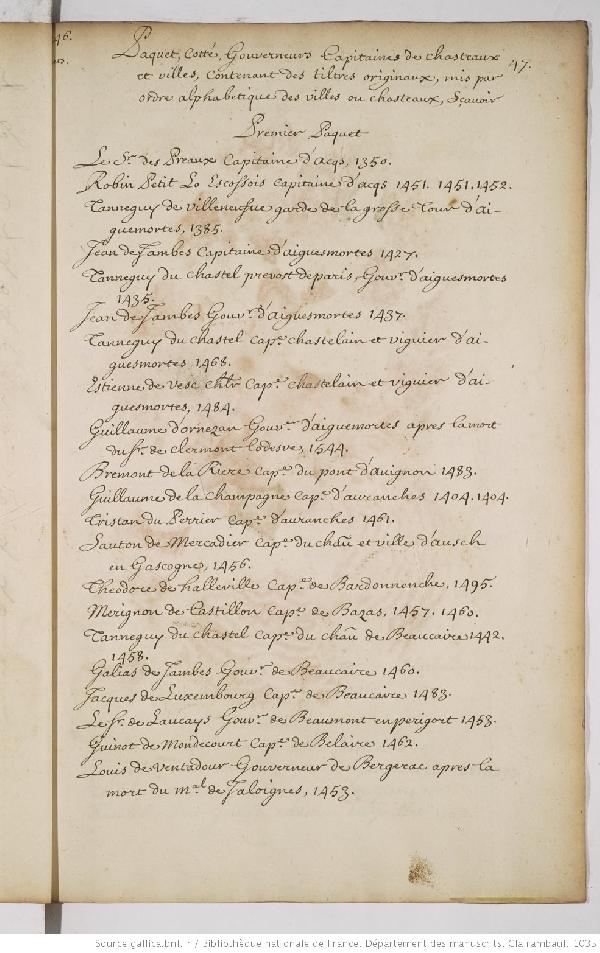 46.
47.
Paquet, Cotté, Gouverneurs Capitaines de chasteaux
et villes, Contenant des tiltres originaux, mis par
ordre alphabetique des villes ou chasteaux, Sçavoir
Premier Paquet
Le Sr. des Preaux Capitaine d'acqs, 1350.
Robin Petit Lo Escossois Capitaine d'acqs 1451. 1451. 1452.
Tanneguy de villeneufue garde de la grosse Tour d'ai-
guemortes, 1385.
Jean de Jambes Capitaine d'aiguesmortes 1427.
Tanneguy du chastel prevost de paris, Gouvr. d'aiguesmortes
1435.
Jean de Jambes Gouvr. d'aiguesmortes 1437.
Tanneguy du chastel Cape. chastelain et viguier d'ai-
guesmortes 1468.
Estienne de Vesc chlr Cape. chastelain et viguier d'ai-
guesmortes, 1484.
Guillaume d'ornezan Gouvr. d'aiguemortes apres la mort
du Sr. de Clermont Lodesve, 1544.
Bremont de la Riere Cape. du pont d'auignon 1483.
Guillaume de la Champagne Cape. d'auranches 1404. 1404.
Tristan du Perrier Cape. d'auranches 1461.
Sauton de Mercadier Cape. du chau et ville d'ausch
en Gascogne, 1456.
Theodore de halleville Cape. de Bardonnenche, 1495.
Merignon de Castillon Cape. de Bazas, 1457. 1460.
Tanneguy du chastel Cape. du chau de Beaucaire 1442.
1458.
Galias de Jambes Gouvr. de Beaucaire 1460.
Jacques de Luxembourg Cape. de Beaucaire 1483.
Le Sr. de Laucays Gouvr. de Beaumont en perigort 1453.
Guinot de Mondecourt Cape. de Belaire 1462.
Louis de Ventadour Gouverneur de Bergerac apres la
mort du mal. de Jaloignes, 1453.
Source gallica.bnf.fr / Bibliothèque nationale de France. Département des manuscrits. Clairambault 1035